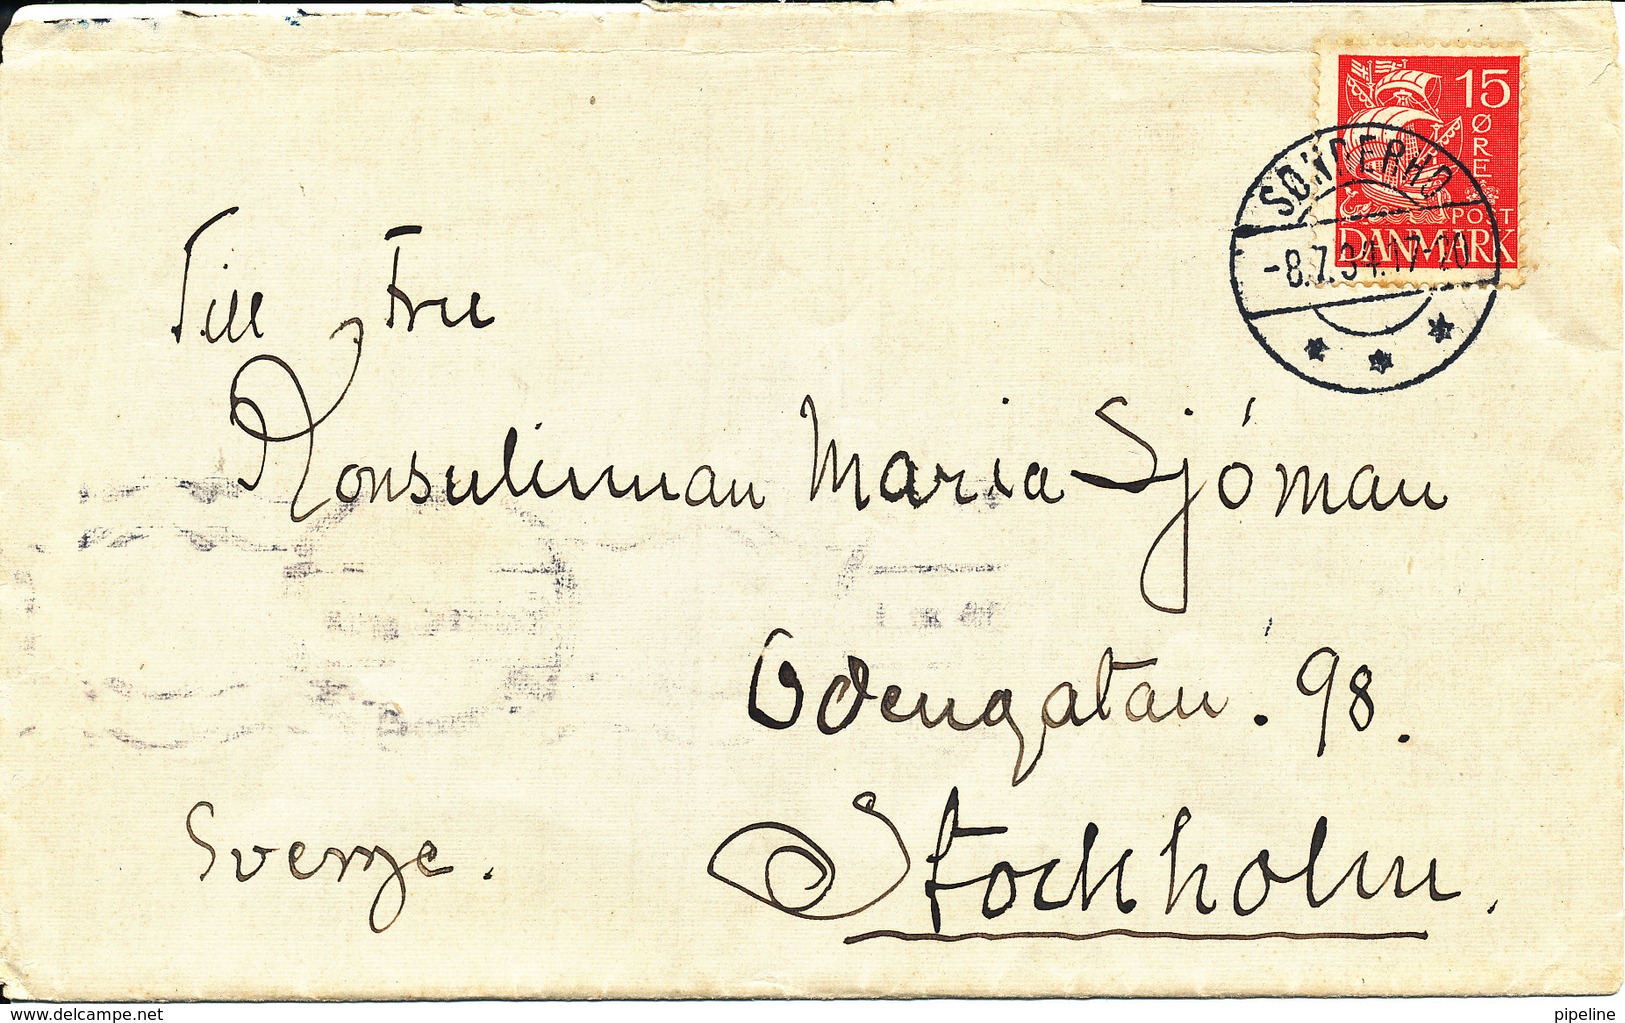 15
ØRE
POST
DANMARK
SØNDERHO
-8.7.34.17-20
Till Fru
Konsulinnan Maria Sjöman
Odengatan. 98.
Sverge.
Stockholm.
www.delcampe.net
pipeline